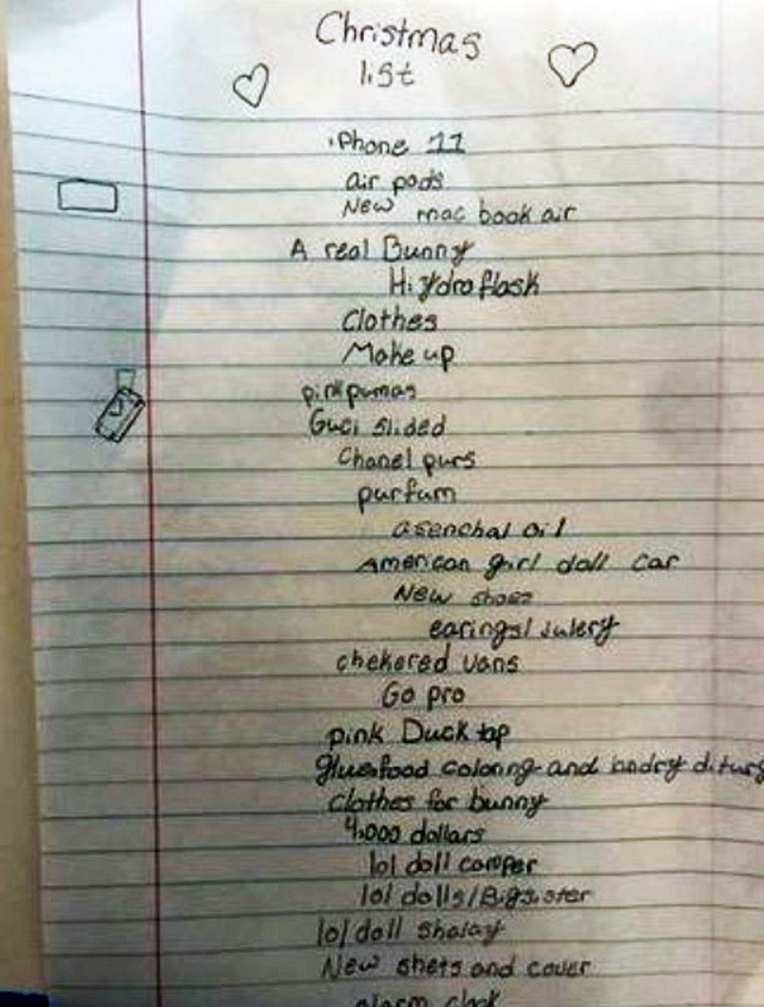 Christmas
list
iPhone 11
air pods
New mac book air
A real Bunny
Hiydroflask
Clothes
Make up
pinkpumas
Guci slided
Chanel purs
purfum
asenchal oil
American girl doll car
New shoes
earings/julery
chekered vans
Go pro
pink Duck tap
glue, food coloring and
clothes for bunny
4,000 dollars
lol doll camper
lol dolls/Bigsister
lol doll shalay
New shets and cover
alarm clock